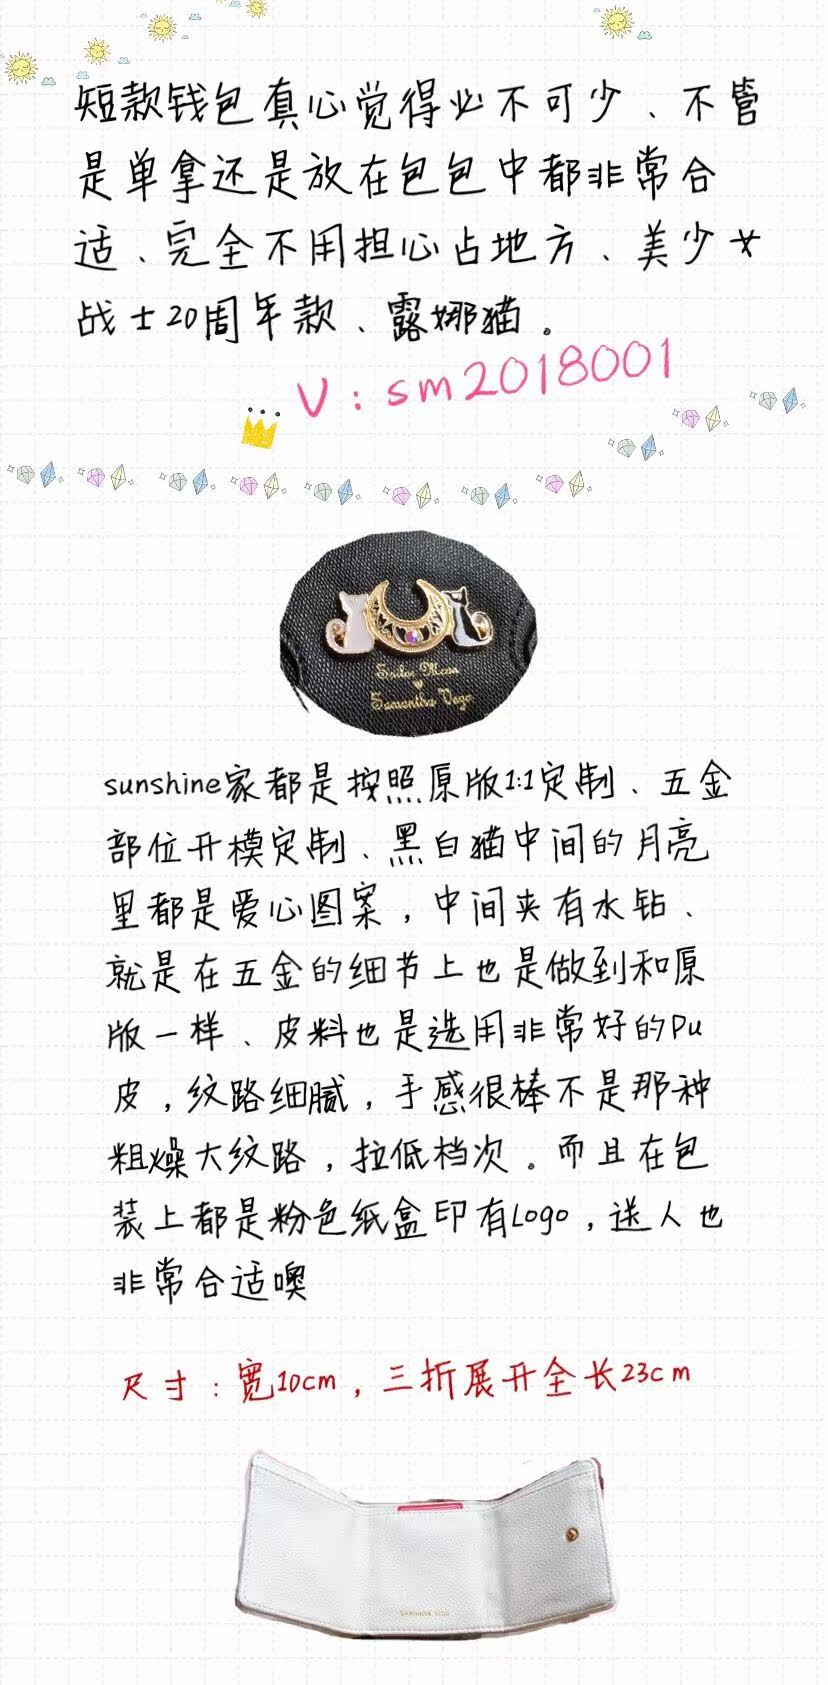 短款钱包真心觉得必不可少、不管
是单拿还是放在包包中都非常合
适、完全不用担心占地方、美少女
战士20周年款、露娜猫。
V:sm2018001
Sailor Moon
Samantha Vega
sunshine家都是按照原版1:1定制、五金
部位开模定制、黑白猫中间的月亮
里都是爱心图案,中间夹有水钻、
就是在五金的细节上也是做到和原
版一样、皮料也是选用非常好的Pu
皮,纹路细腻,手感很棒不是那种
粗燥大纹路,拉低档次。而且在包
装上都是粉色纸盒印有Logo,送人也
非常合适噢
尺寸:宽10cm,三折展开全长23cm
SAMANTHA VEGA